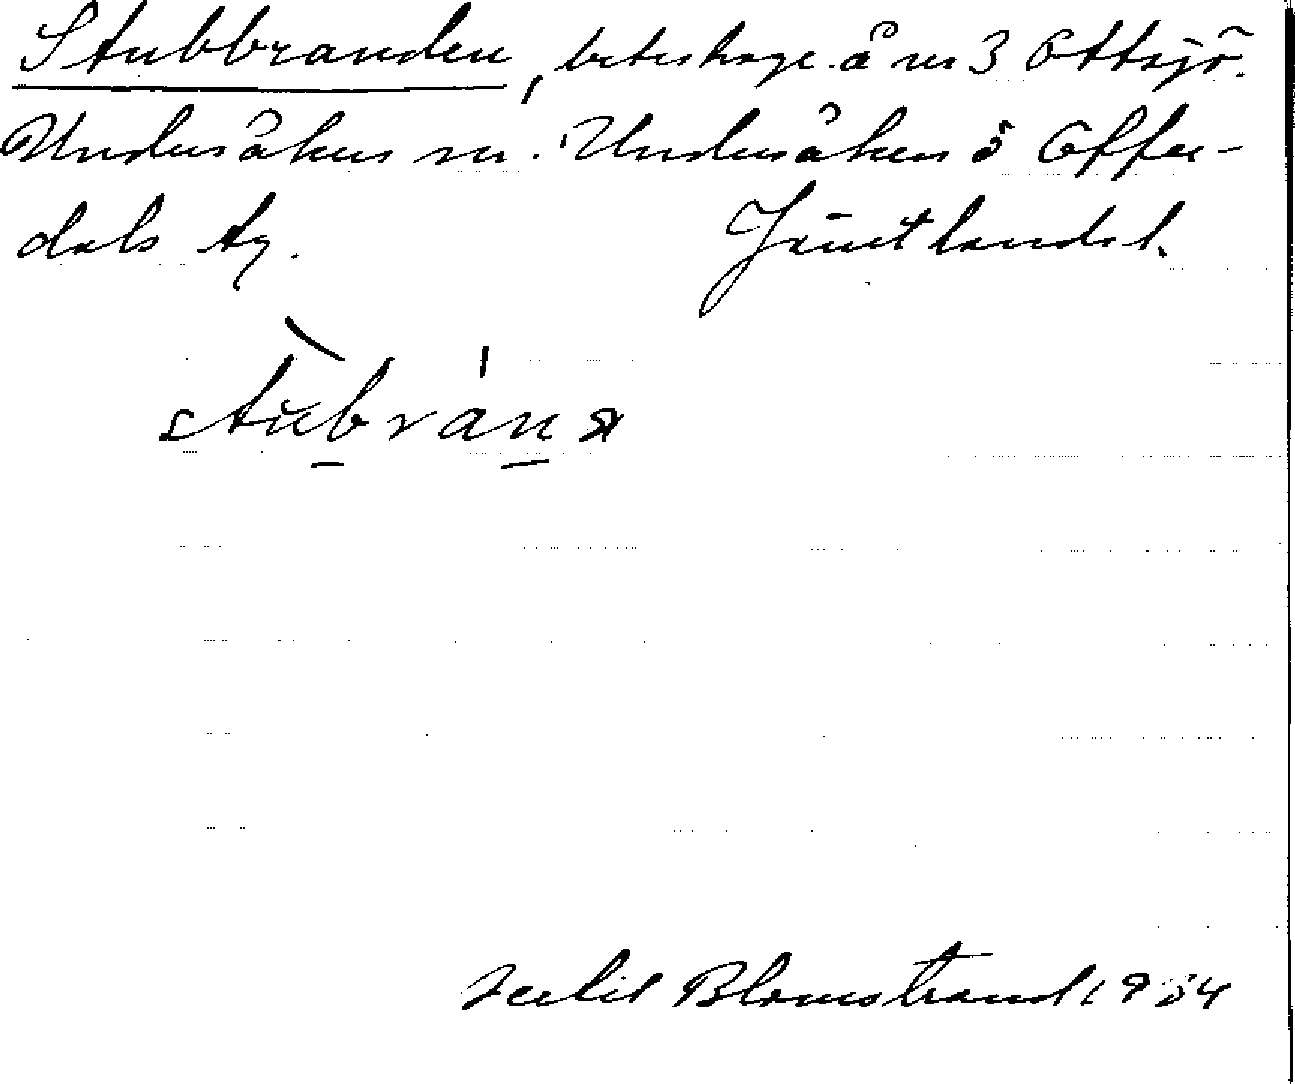 Stubbranden, beteshage å nr 3 Ottsjö.
Undersåkers sn. Undersåkers o Offer-
dals tg. Jämtland.
stùbrán
Blomstrand 1934